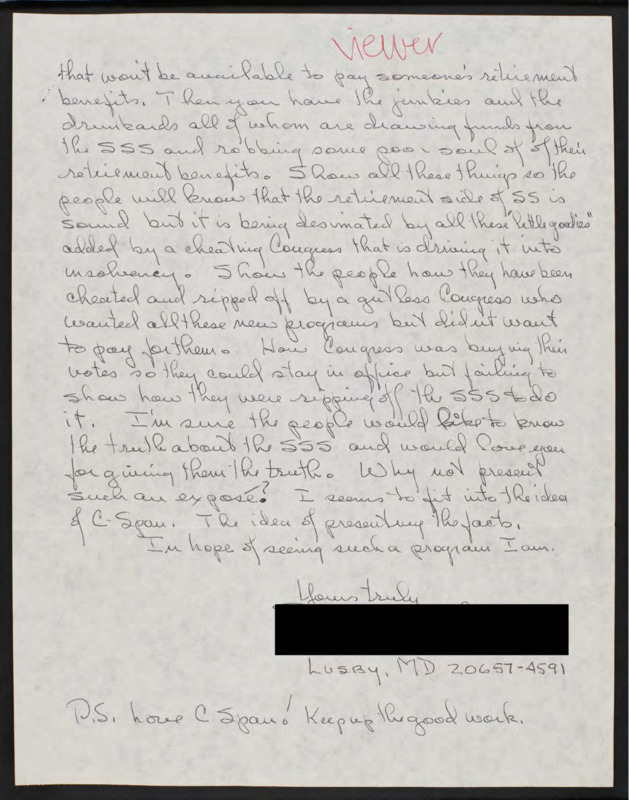 viewer
that won't be available to pay someone's retirement
benefits. Then you have the junkies and the
drunkards all of whom are drawing funds from
the SSS and robbing some poor soul of of their
retirement benefits. Show all these things so the
people will know that the retirement side of SS is
sound but it is being desimated by all these "little goodies"
added by a cheating Congress that is driving it into
insolvency. Show the people how they have been
cheated and ripped off by a gutless Congress who
wanted all these new programs but didn't want
to pay for them. How Congress was buying their
votes so they could stay in office but failing to
show how they were ripping off the SSS to do
it. I'm sure the people would like to know
the truth about the SSS and would love you
for giving them the truth. Why not present
such an exposé? I seems to fit into the idea
of C-Span. The idea of presenting the facts.
In hope of seeing such a program I am.
Yours truly
Lusby, MD 20657-4591
P.S. Love C Span! Keep up the good work.